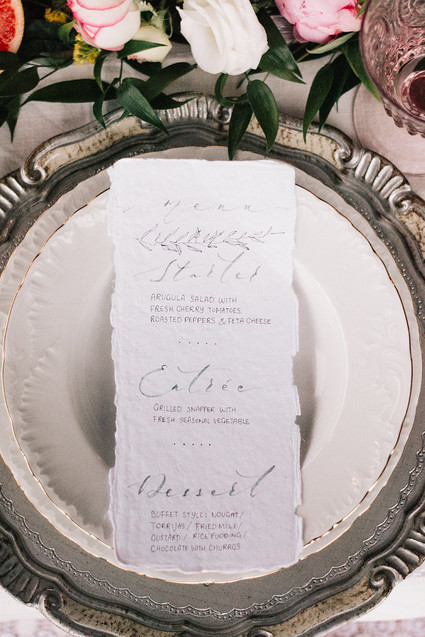 menu
Starter
ARUGULA SALAD WITH
FRESH CHERRY TOMATOES,
ROASTED PEPPERS & FETA CHEESE
.....
Entrée
GRILLED SNAPPER WITH
FRESH SEASONAL VEGETABLE
.....
Dessert
BUFFET STYLE: NOUGAT/
TORRIJAS/ FRIED MILK/
CUSTARD/ RICE PUDDING/
CHOCOLATE WITH CHURROS